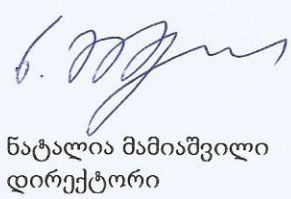 ნატალია მამიაშვილი
დირექტორი